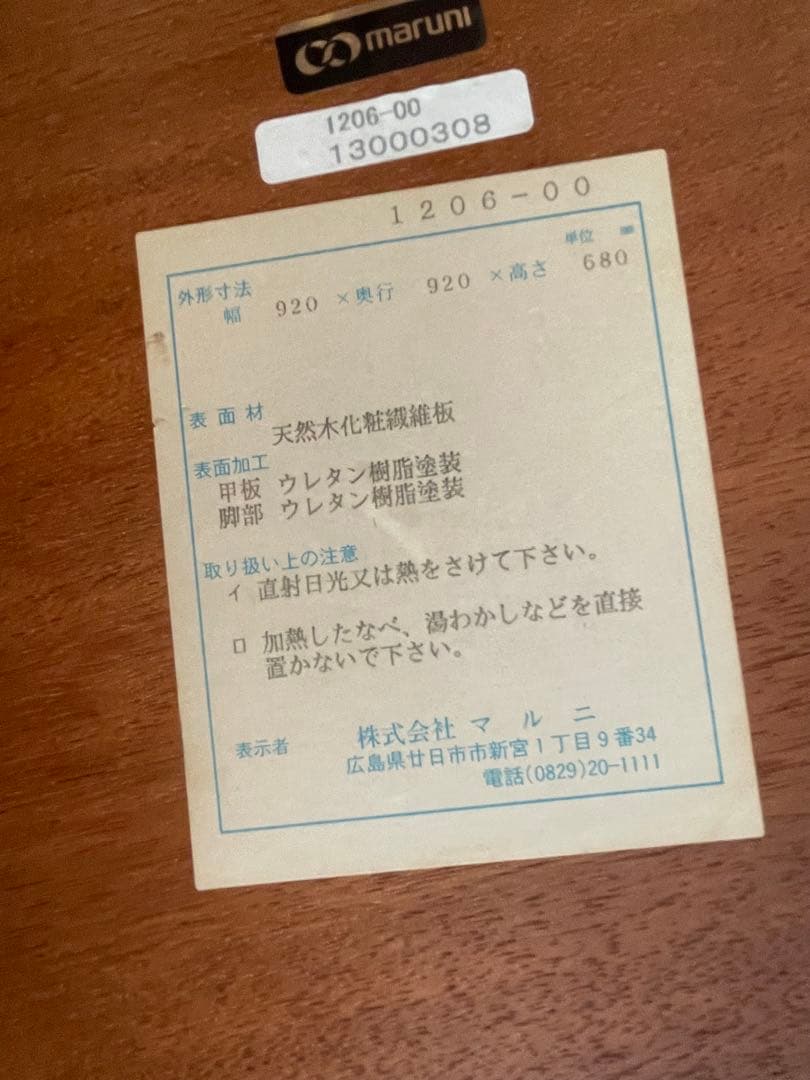 maruni
1206-00
13000308
1206-00
単位 ㎜
外形寸法
幅 920 ×奥行 920 ×高さ 680
表面材
天然木化粧繊維板
表面加工
甲板 ウレタン樹脂塗装
脚部 ウレタン樹脂塗装
取り扱い上の注意
イ 直射日光又は熱をさけて下さい。
ロ 加熱したなべ、湯わかしなどを直接
置かないで下さい。
表示者 株式会社 マルニ
広島県廿日市市新宮1丁目9番34
電話(0829)20-1111